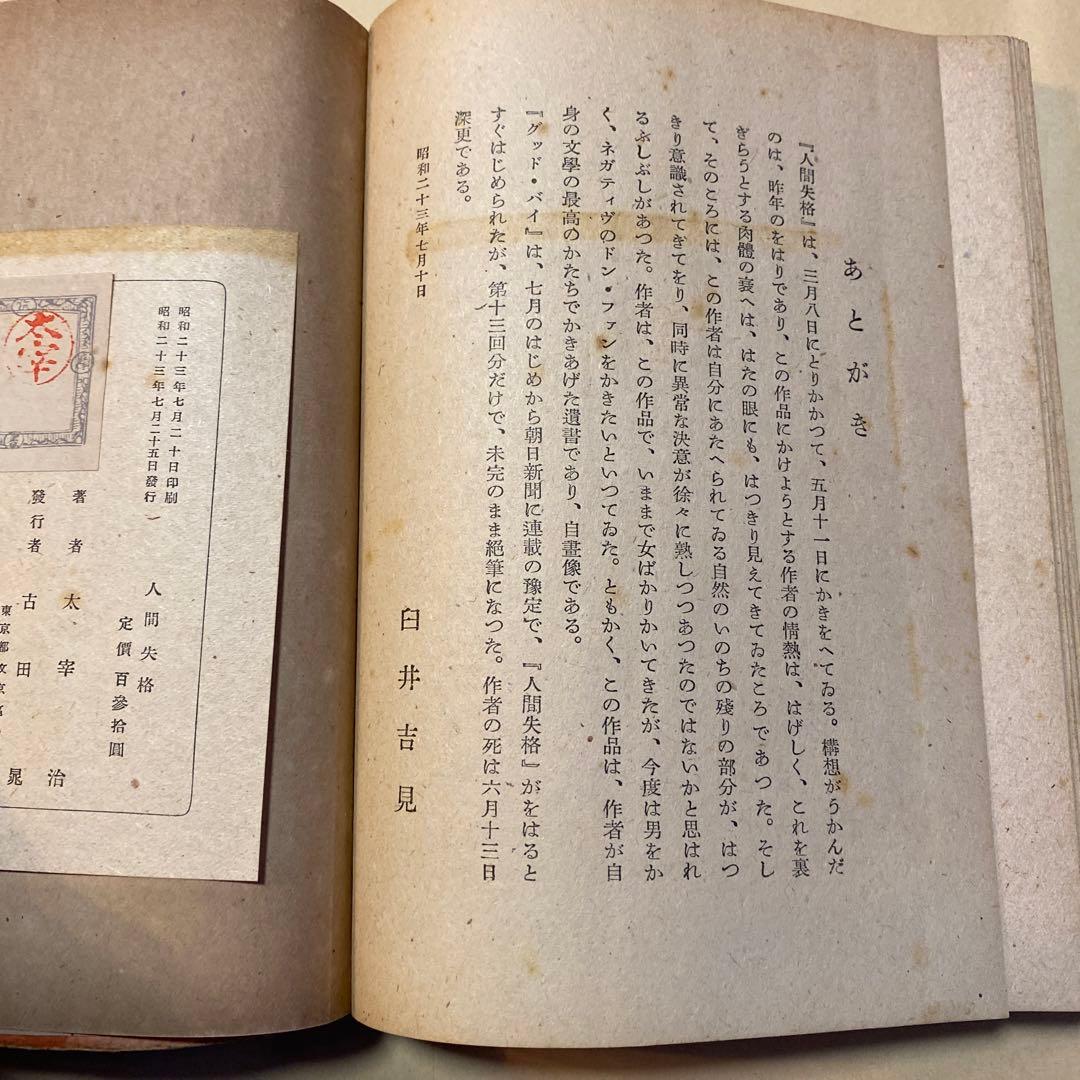 あとがき
『人間失格』は、三月八日にとりかかつて、五月十一日にかきをへてゐる。構想がうかんだ
のは、昨年のをはりであり、この作品にかけようとする作者の情熱は、はげしく、これを裏
ぎらうとする肉體の衰へは、はたの眼にも、はつきり見えてきてゐたころであつた。そし
て、そのころには、この作者は自分にあたへられてゐる自然のいのちの殘りの部分が、はつ
きり意識されてきてをり、同時に異常な決意が徐々に熟しつつあつたのではないかと思はれ
るふしぶしがあつた。作者は、この作品で、いままで女ばかりかいてきたが、今度は男をか
く、ネガティヴのドン・ファンをかきたいといつてゐた。ともかく、この作品は、作者が自
身の文學の最高のかたちでかきあげた遺書であり、自畫像である。
『グッド・バイ』は、七月のはじめから朝日新聞に連載の豫定で、『人間失格』がをはると
すぐはじめられたが、第十三回分だけで、未完のまま絕筆になつた。作者の死は六月十三日
深更である。
昭和二十三年七月十日
臼井吉見
人間失格
定價百參拾圓
昭和二十三年七月二十日印刷
昭和二十三年七月二十五日發行
著者 太宰治
發行者 古田晁
東京都文京區
太宰